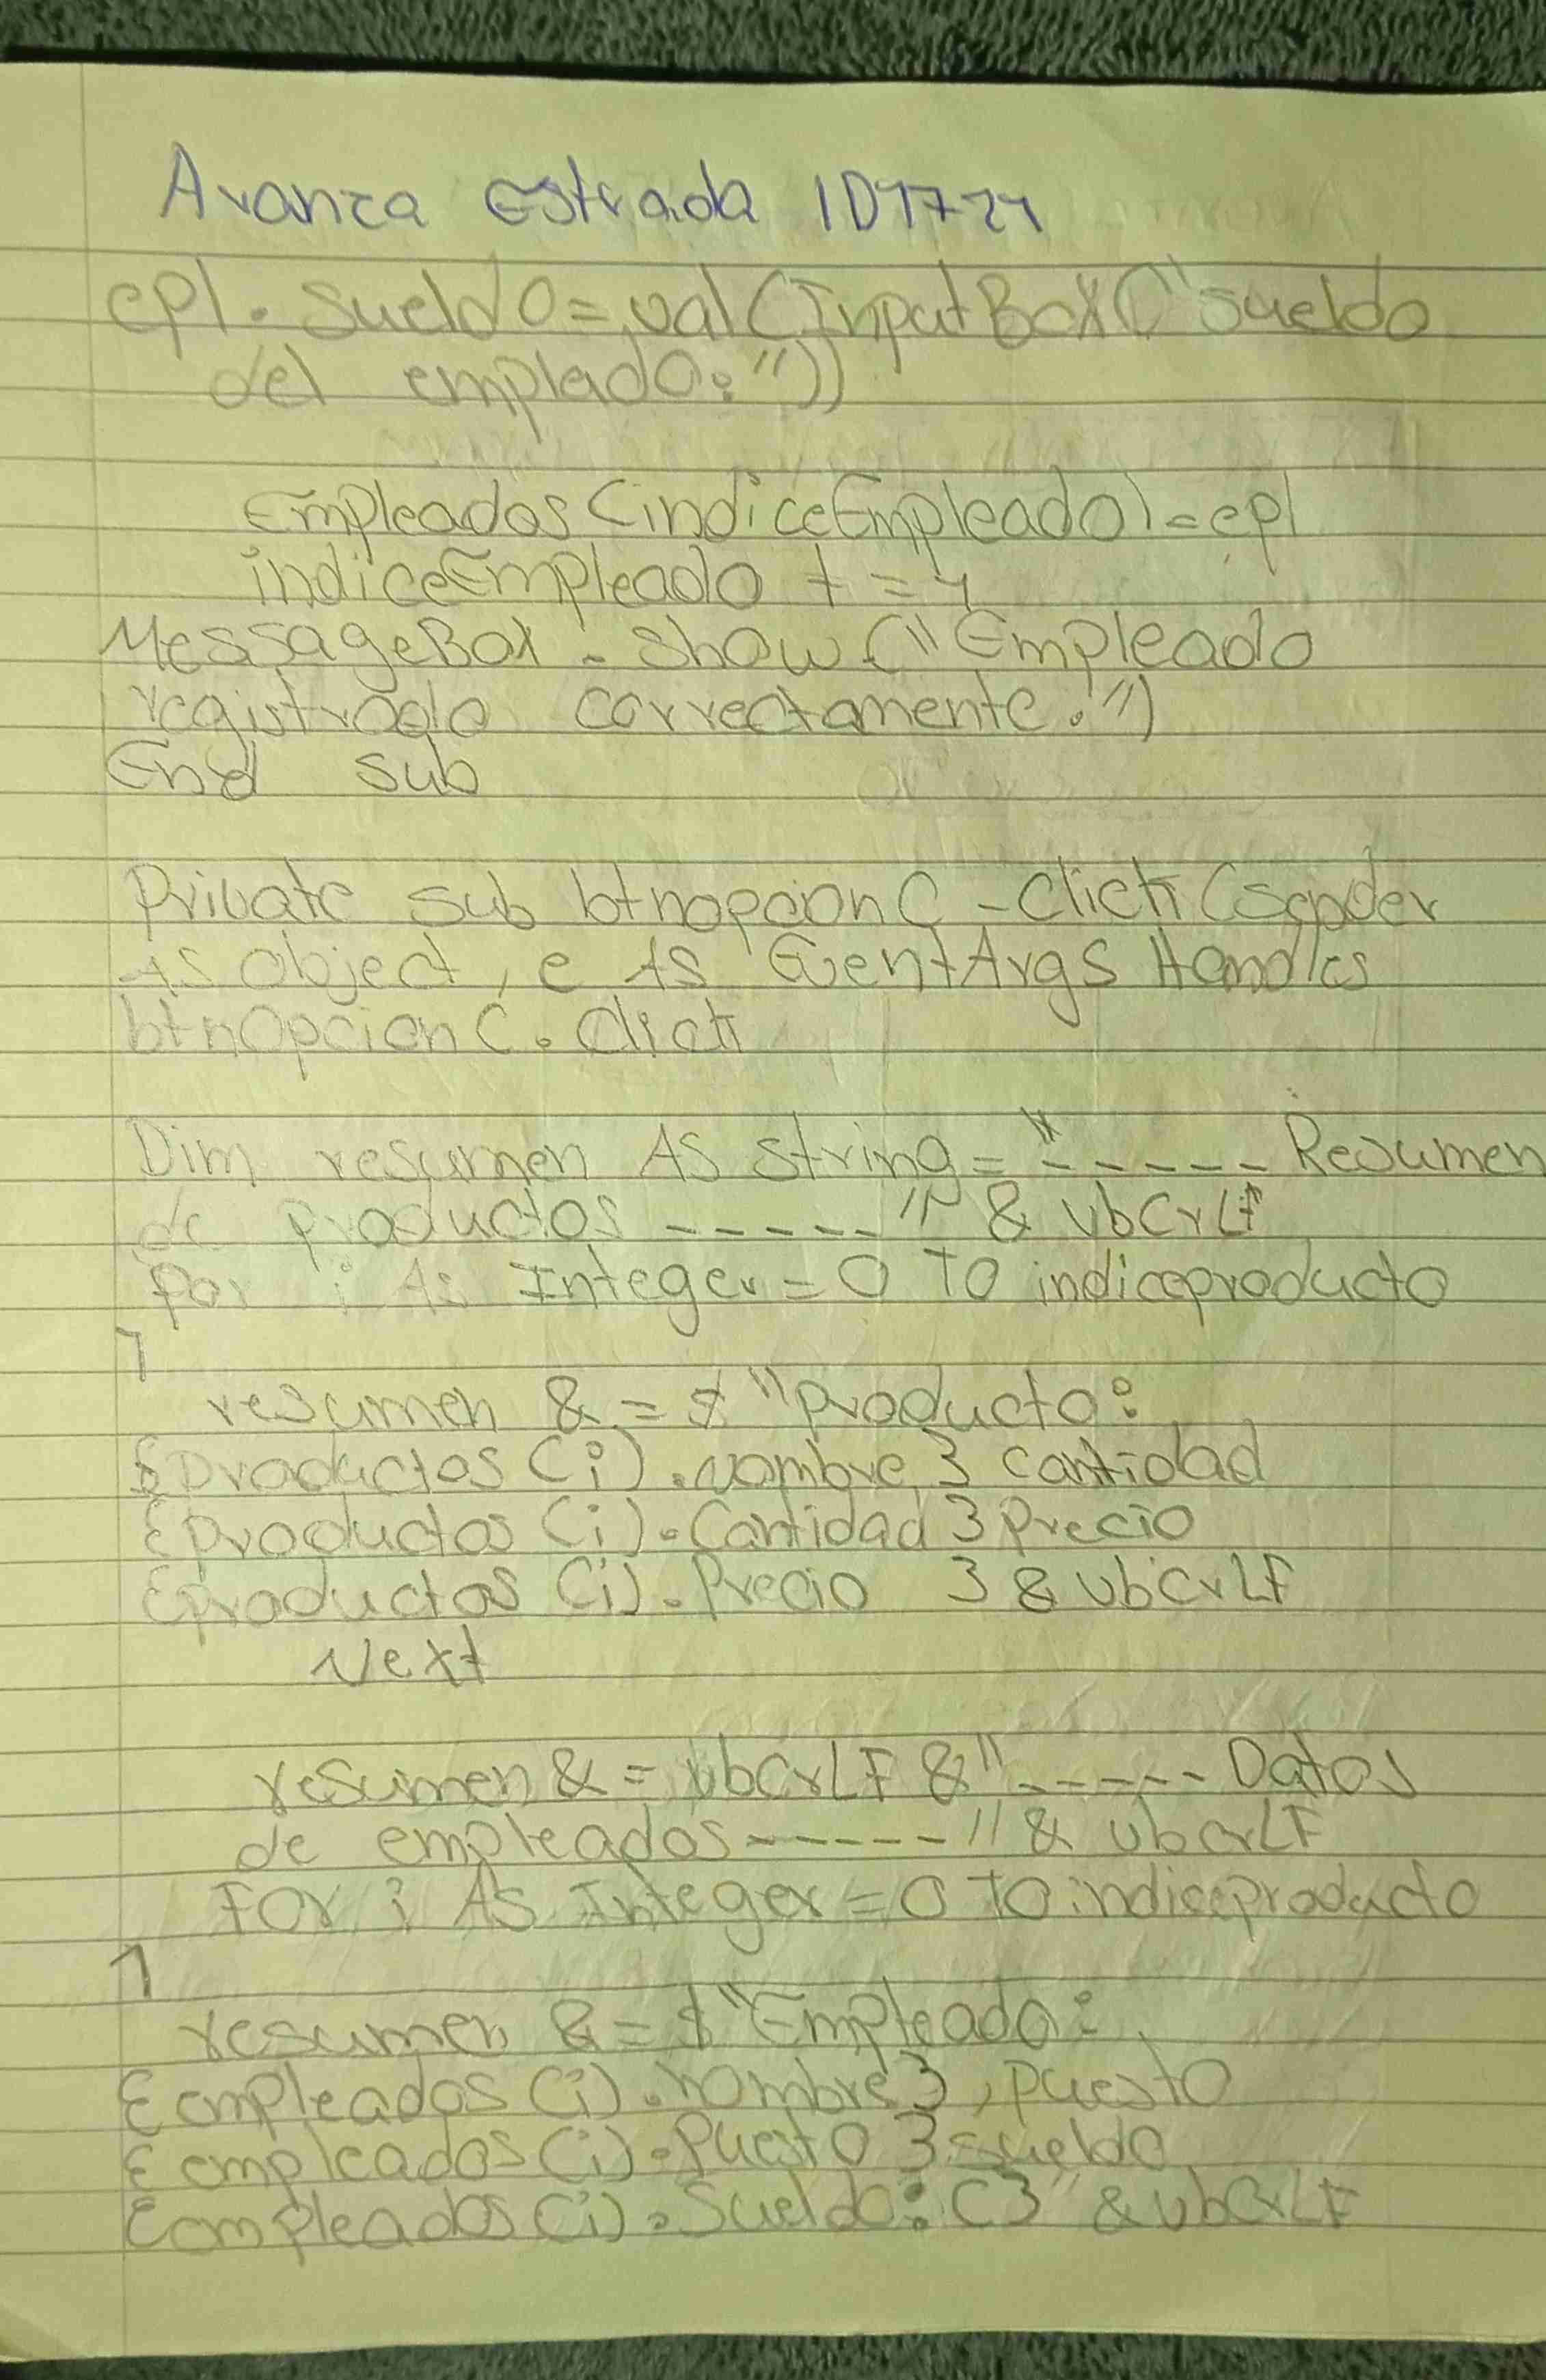 Aranza Estrada ID1724
epl. Sueldo = val (InputBox ("sueldo
del emplado:"))
Empleados (indiceEmpleado) = epl
indiceEmpleado + = 1
MessageBox . Show ("Empleado
registrado correctamente.")
End sub
Private sub btnopcion C - Click (sender
As Object, e As EventArgs Handles
btnOpcion C. Click
Dim resumen As string = "----- Resumen
de productos -----" & vbCrLF
for i As Integer = 0 To indiceproducto
1
resumen & = $ "producto:
{productos (i) . nombre } cantidad
{productos (i) . Cantidad } Precio
{productos (i) . Precio } & vbCrLF
Next
resumen & = vbCrLF & "----- Datos
de empleados -----" & vbCrLF
For i As Integer = 0 To indiceproducto
1
resumen & = $ "Empleado:
{empleados (i) . nombre }, puesto
{empleados (i) . Puesto } sueldo
{empleados (i) . Sueldo : C}" & vbCrLF